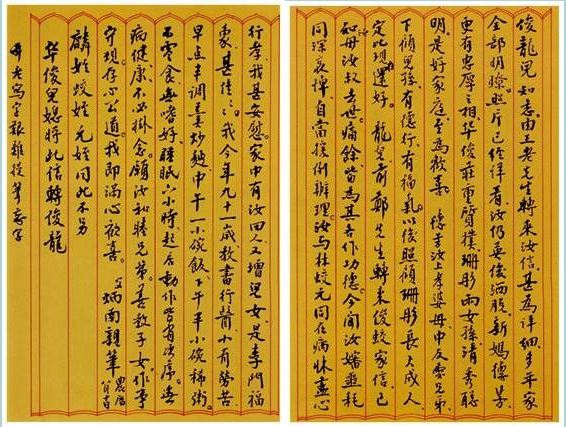 俊龍兒知悉由王老先生轉來汝信甚為詳細多年家
全部明瞭照片已經詳看汝仍英俊洒脫新媽德芳
更有忠厚之相華俊莊重質樸珊彤兩女孫清秀聰
明是好家庭至為欣喜 德芳汝上孝婆母中友愛兄弟
下順兒孫有德行有福氣以後照顧珊彤長大成人
定比現還好 龍兒前鄭先生轉來俊蛟家信已
知母汝叔去世痛餘皆為其作功德今聞汝嬸噩耗
同深哀悼自當援例辦理汝与林蛟元同在病牀盡心
行孝我甚安慰家中有汝四人又增兒女是李門福
象甚佳我今年九十一歲教書行醫小有勞苦
早点半調羹炒麵中午一小碗飯下午半小碗稀粥
不零食無嗜好睡眠六小時起居動作皆有次序無
病健康不必掛念願汝和睦兄弟善教子女作事
守規存心公道我即滿心歡喜 父炳南親筆 農曆
麟姪蛟姪元姪同此不另
華俊兒媳將此信轉俊龍
年老寫字艱難提筆忘字